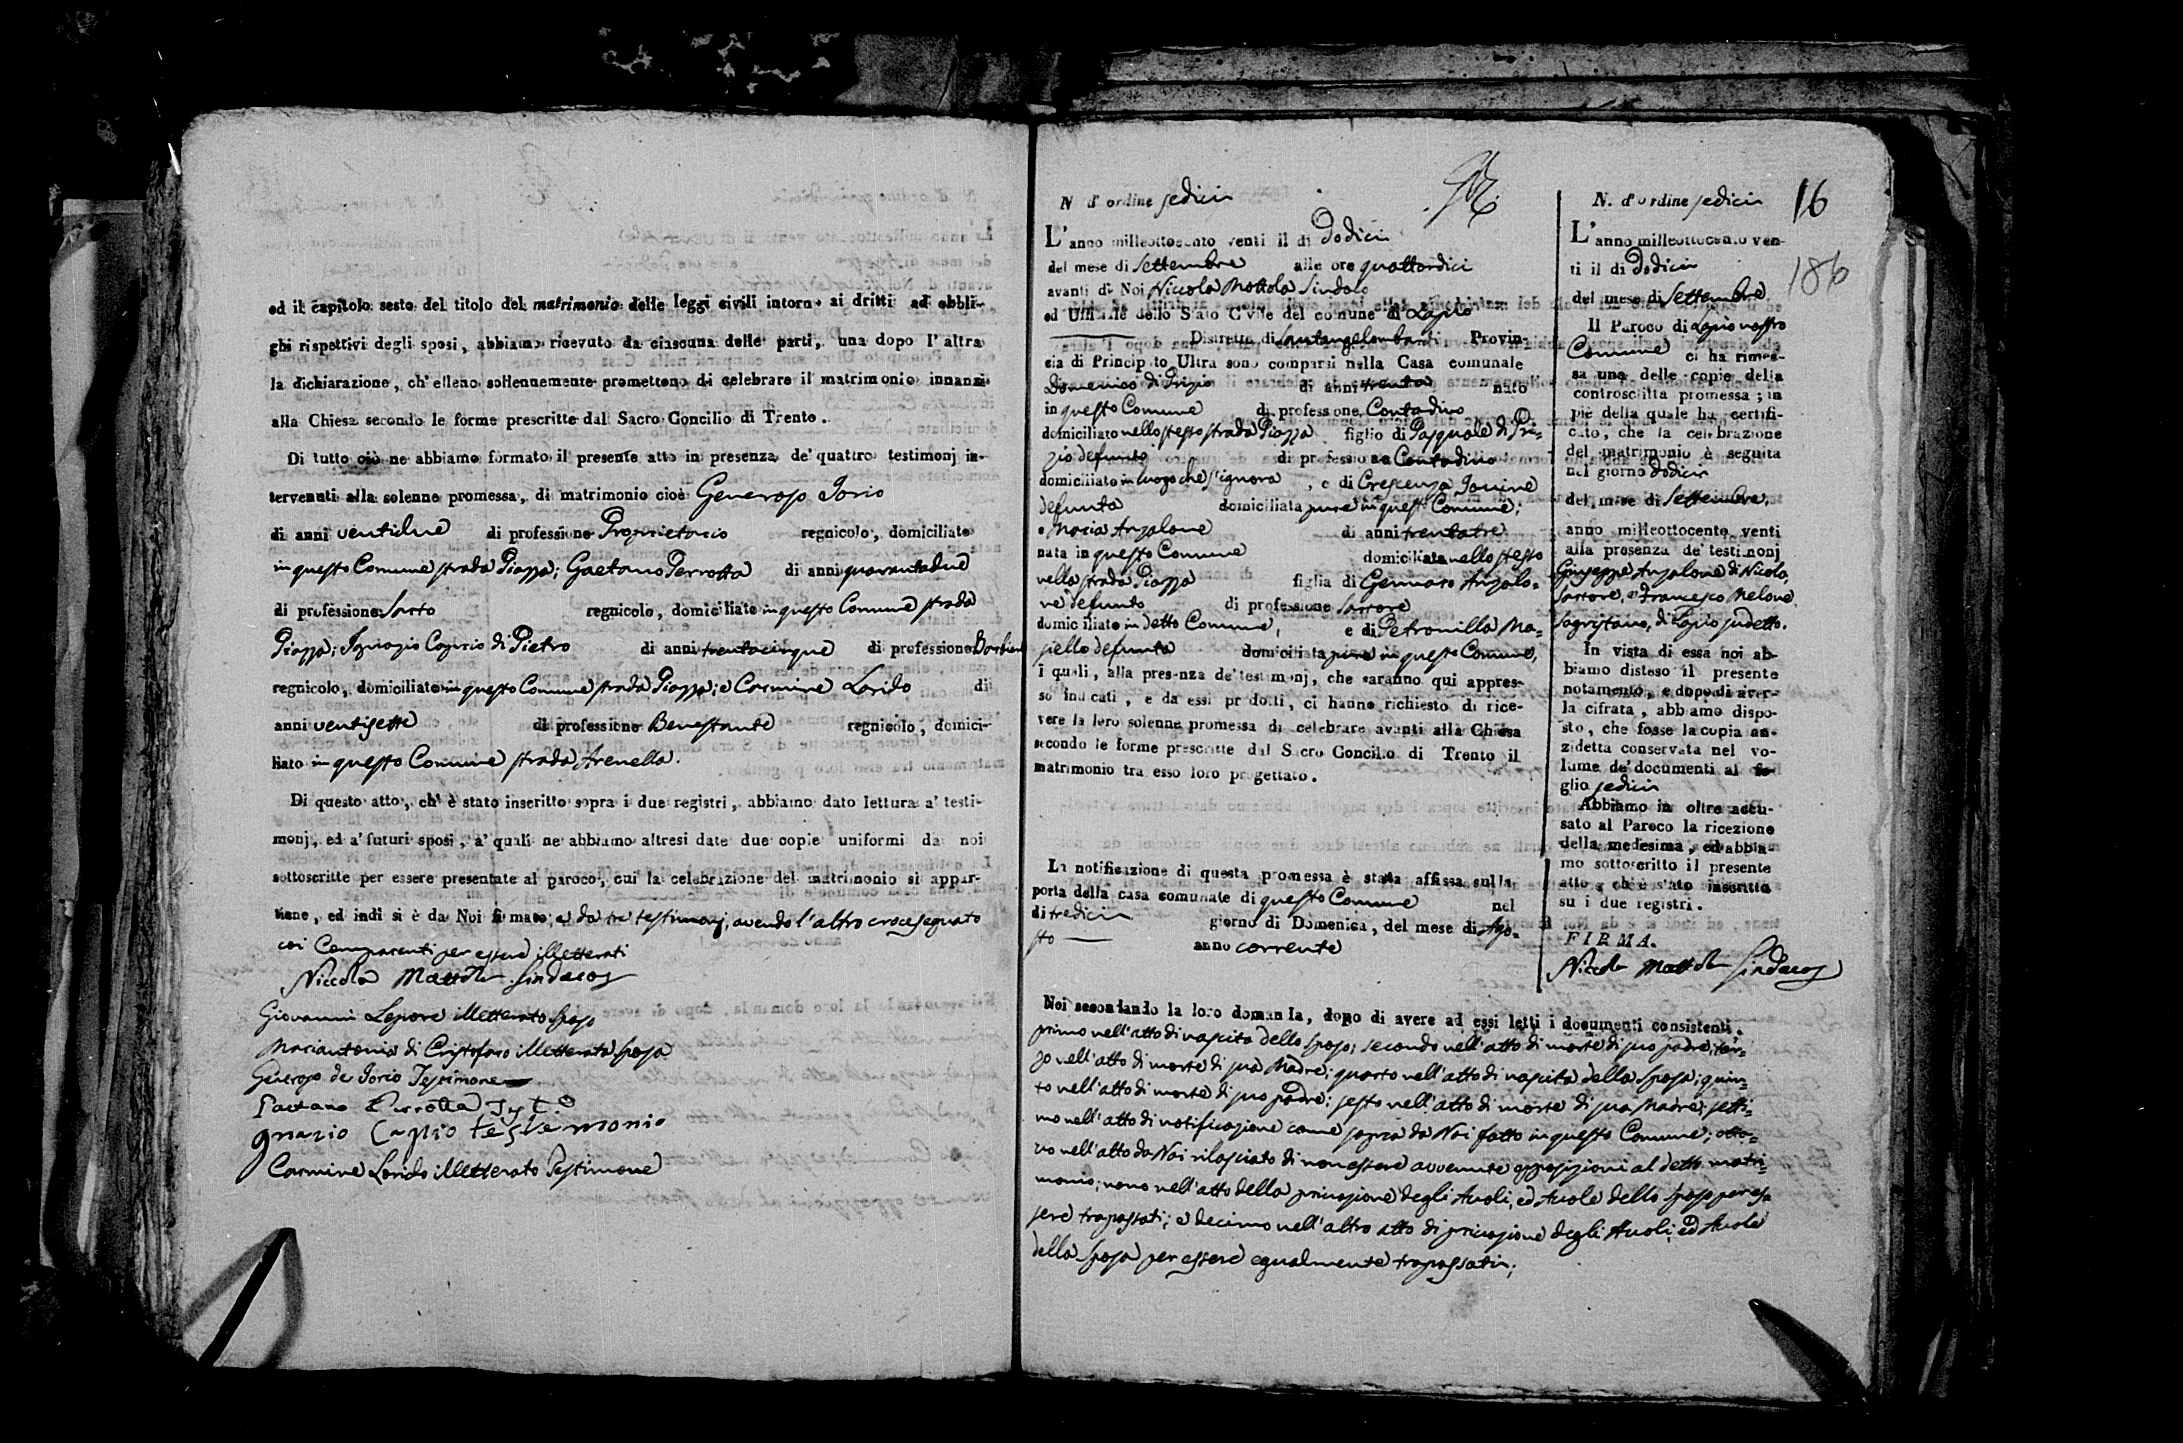 ed il capitolo sesto del titolo del matrimonio delle leggi civili intorno ai dritti ad obbli-
ghi rispettivi degli sposi, abbiamo ricevuto da ciascuna delle parti, una dopo l'altra
la dichiarazione, ch'elleno sollennemente promettono di celebrare il matrimonio innanzi
alla Chiesa secondo le forme prescritte dal Sacro Concilio di Trento.
Di tutto ciò ne abbiamo formato il presente atto in presenza de'quattro testimonj in-
tervenuti alla solenne promessa, di matrimonio cioè Generoso Iorio
di anni ventidue di professione Proprietario regnicolo, domiciliato
in questo Comune strada Piazza; Gaetano Perrotta di anni quarantadue
di professione Sarto regnicolo, domiciliato in questo Comune strada
Piazza; Ignazio Caprio di Pietro di anni trentacinque di professione Barbiere
regnicolo, domiciliato in questo Comune strada Piazza; e Carmine Lorido di
anni ventisette di professione Benestante regnicolo, domici-
liato in questo Comune strada Arenella.
Di questo atto, ch'è stato inscritto sopra i due registri, abbiamo dato lettura a' testi-
monj, ed a' futuri sposi, a' quali ne abbiamo altresì date due copie uniformi da noi
sottoscritte per essere presentate al paroco, cui la celebrazione del matrimonio si appar-
tiene, ed indi si è da Noi firmato, e da tre testimonj, avendo l'altro crocesegnato
coi Comparenti per essere illetterati
Niccola Mottola Sindaco
Giovanni Lepore illetterato sposo
Mariantonia di Cristofaro illetterata sposa
Generoso de Iorio Testimone
Gaetano Perrotta
gnazio Caprio testemonio
Carmine Lorido illetterato Testimone
N d'ordine sedici
L'anno milleottocento venti il di Dodici
del mese di Settembre alle ore quattordici
avanti di Noi Niccola Mottola Sindaco
ed Uffiziale dello Stato Civile del comune di Lapio
Distretto di Santangelombardi Provin-
cia di Principato Ultra sono comparsi nella Casa comunale
Domenico di Prizio di anni trenta nato
in questo Comune di professione Contadino
domiciliato nello stesso strada Piazza figlio di Pasquale di Pri-
zio defunto di professione Contadino
domiciliato in luogo che s'ignora, e di Crescenza Iovine
defunta domiciliata pure in questo Comune;
e Maria Anzalone di anni trentatre
nata in questo Comune domiciliata nello stesso
nella strada Piazza figlia di Gennaro Anzalo-
ne defunto di professione Sartore
domiciliato in detto Comune, e di Petronilla Ma-
siello defunta domiciliata pure in questo Comune,
i quali, alla presenza de'testimonj, che saranno qui appres-
so indicati, e da essi prodotti, ci hanno richiesto di rice-
vere la loro solenne promessa di celebrare avanti alla Chiesa
secondo le forme prescritte dal Sacro Concilio di Trento il
matrimonio tra esso loro progettato.
La notificazione di questa promessa è stata affissa sulla
porta della casa comunale di questo Comune nel
di tredici giorno di Domenica, del mese di Ago-
sto anno corrente
Noi secondando la loro domanda, dopo di avere ad essi letti i documenti consistenti.
primo nell'atto di nascita dello sposo; secondo nell'atto di morte di suo padre; ter-
zo nell'atto di morte di sua Madre; quarto nell'atto di nascita della sposa; quin-
to nell'atto di morte di suo padre; sesto nell'atto di morte di sua Madre; setti-
mo nell'atto di notificazione come sopra da Noi fatto in questo Comune; otta-
vo nell'atto da Noi rilasciato di non essere avvenute opposizioni al detto matri-
monio; nono nell'atto della privazione degli Avoli, ed Avole dello sposo per es-
sere trapassati; e decimo nell'altro atto di privazione degli Avoli, ed Avole
della sposa per essere egualmente trapassati;
N. d'ordine sedici 16
L'anno milleottocento ven-
ti il di Dodici 186
del mese di Settembre
Il Paroco di Lapio nostro
Comune ci ha rimes-
sa una delle copie della
controscritta promessa; in
piè della quale ha certifi-
cato, che la celebrazione
del matrimonio è seguita
nel giorno dodici
del mese di Settembre,
anno milleottocento venti
alla presenza de'testimonj
Giuseppe Anzalone di Nicola,
Sartore, e Francesco Melone
Sagristano, di Lapio sudetto.
In vista di essa noi ab-
biamo disteso il presente
notamento, e dopo di aver-
la cifrata, abbiamo dispo-
sto, che fosse la copia an-
zidetta conservata nel vo-
lume de'documenti al fo-
glio sedici
Abbiamo in oltre accu-
sato al Paroco la ricezione
della medesima, ed abbia-
mo sottoscritto il presente
atto, ch'è stato inscritto
su i due registri.
FIRMA.
Niccola Mottola Sindaco